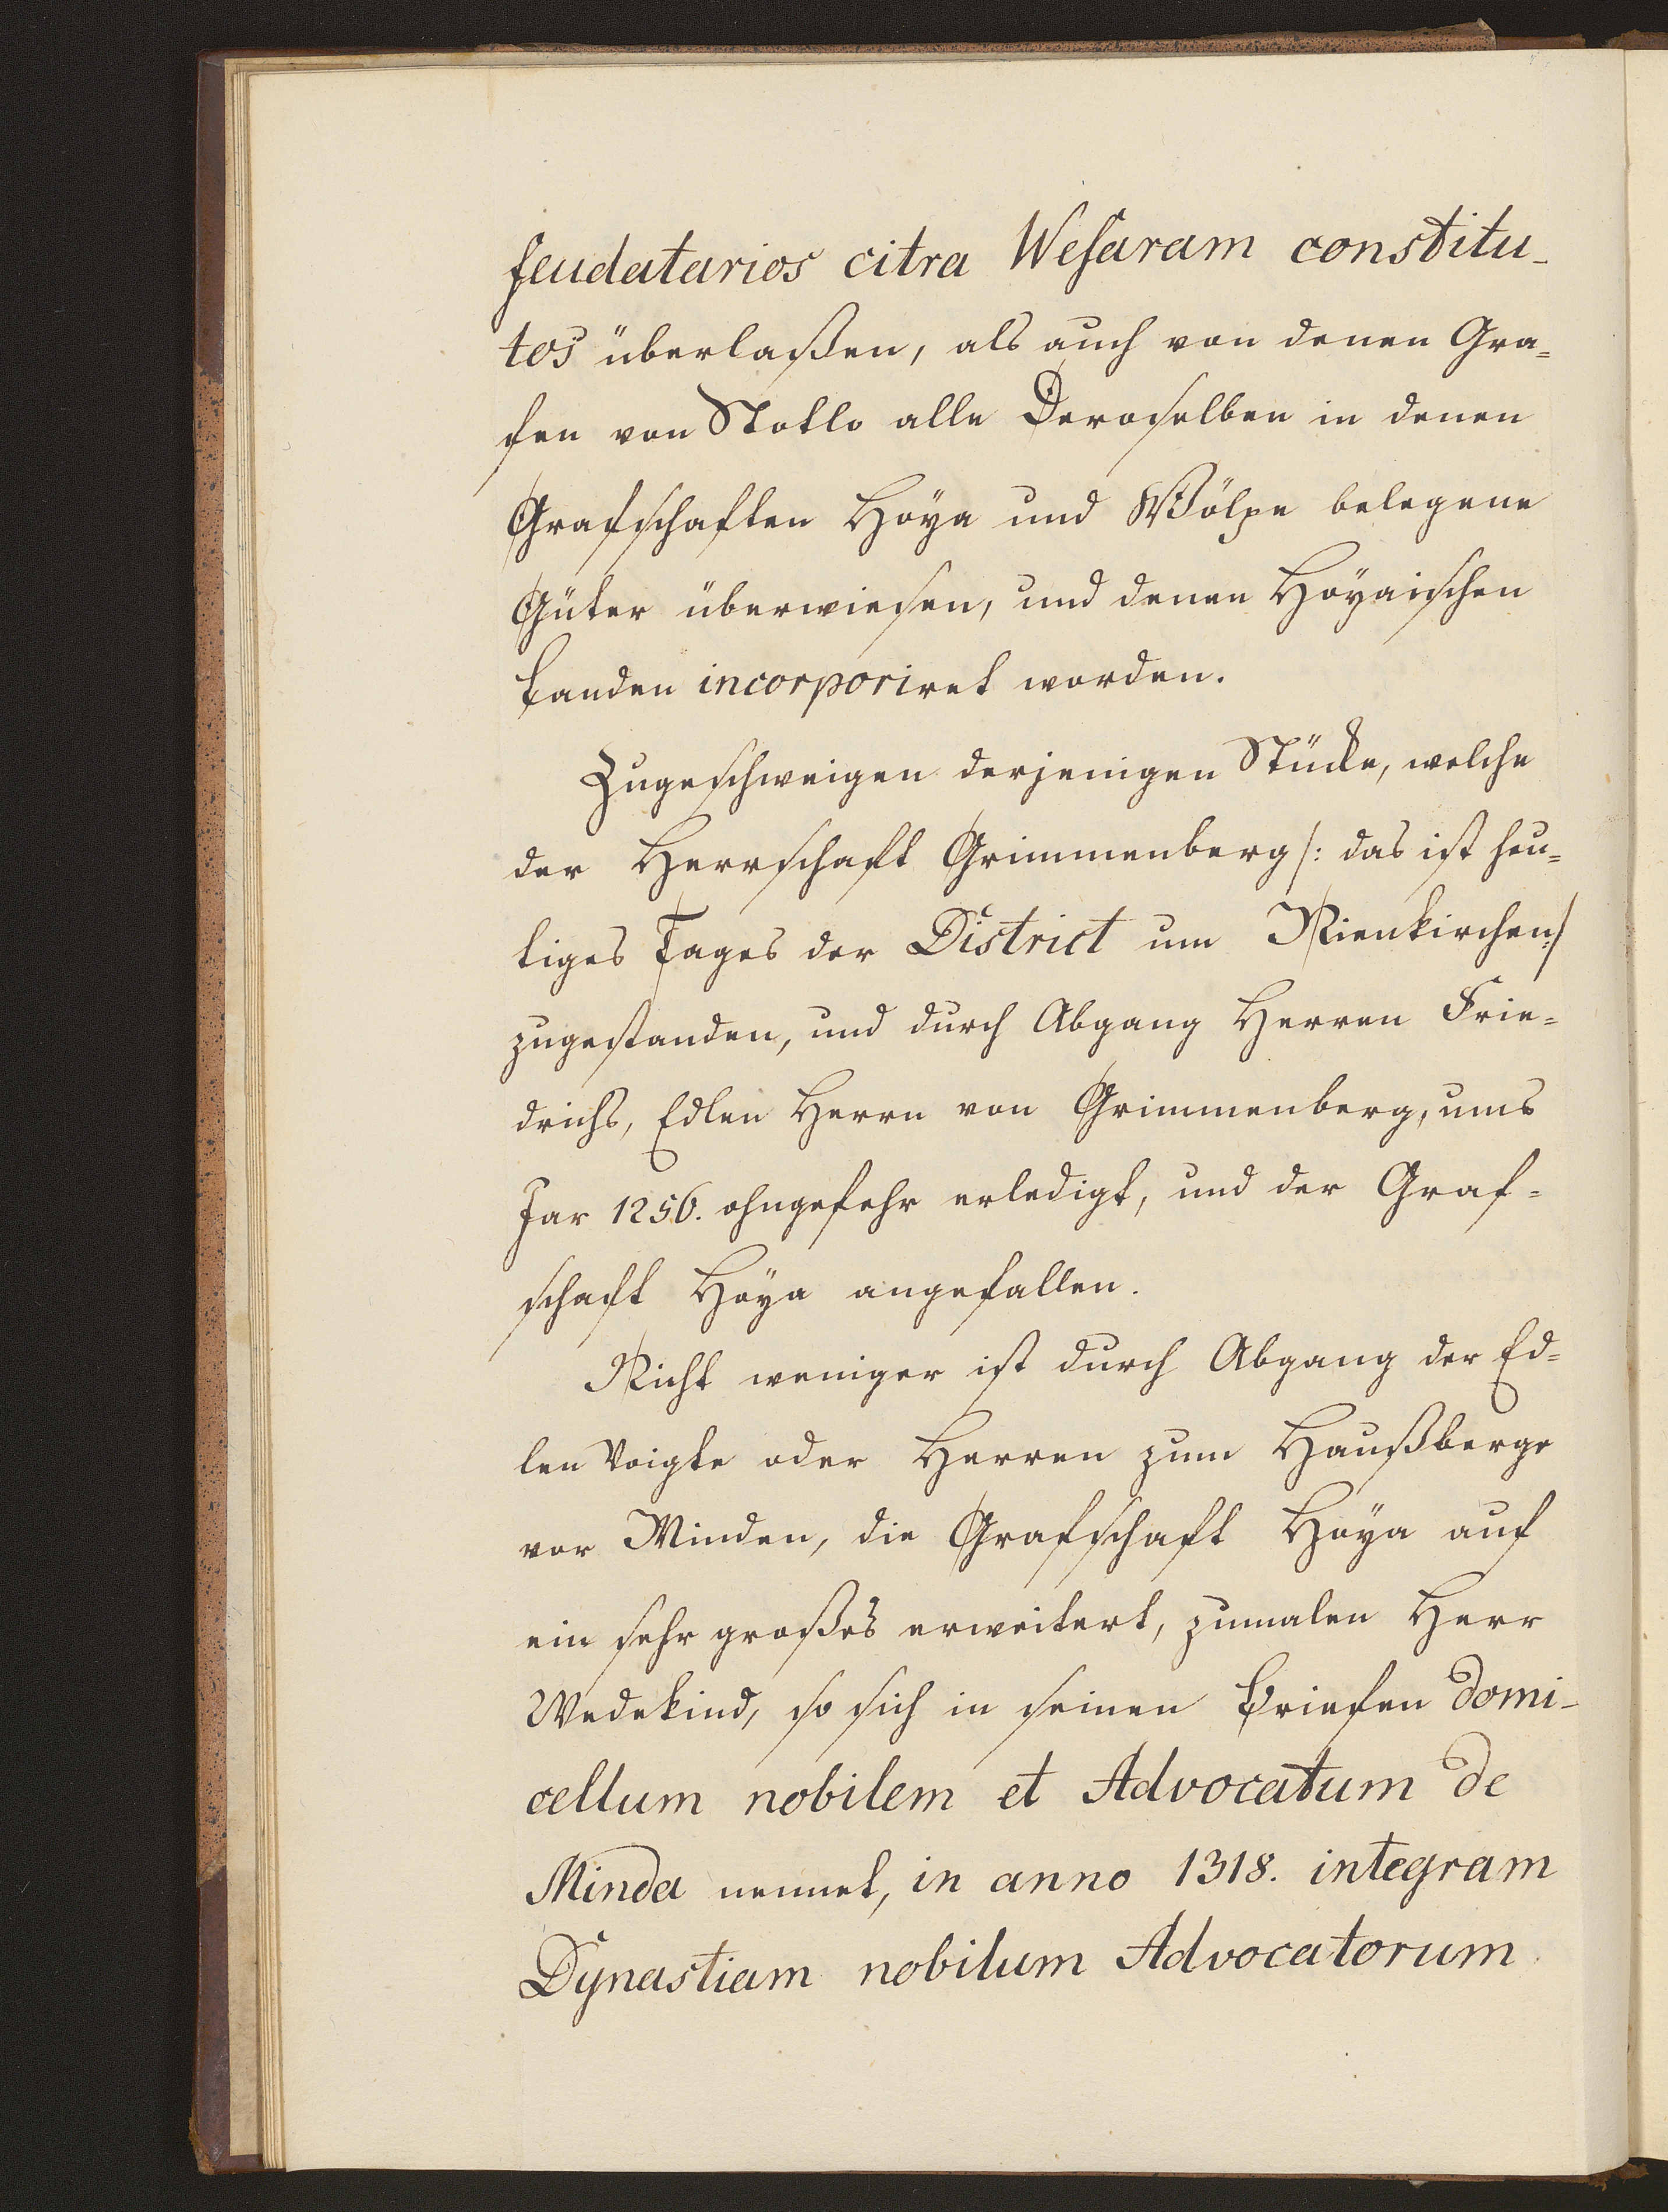 feudatarios citra Wesaram constitu-
tos überlaßen, als auch von denen Gra=
fen von Stotle alle Deroselben in denen
Grafschaften Hoÿa und Wölpe belegene
Güter überwiesen, und denen Hoÿaischen
Landen incorporiret worden.
Zugeschweigen derjenigen Stücke, welche
der Herrschaft Grimmenberg /: das ist heu=
tiges Tages der District um Nienkirchen :/
zugestanden, und durch Abgang Herren Frie=
drichs, Edlen Herrn von Grimmenberg, ums
Jar 1256. ohngefehr erledigt, und der Graf=
schaft Hoÿa angefallen.
Nicht weniger ist durch Abgang der Ed=
len Voigte oder Herren zum Haußberge
vor Minden, die Grafschaft Hoÿa auf
ein sehr großes erweitert, zumalen Herr
Wedekind, so sich in seinen Briefen domi-
cellum nobilem et Advocatum de
Minda nennet, in anno 1318. integram
Dynastiam nobilum Advocatorum